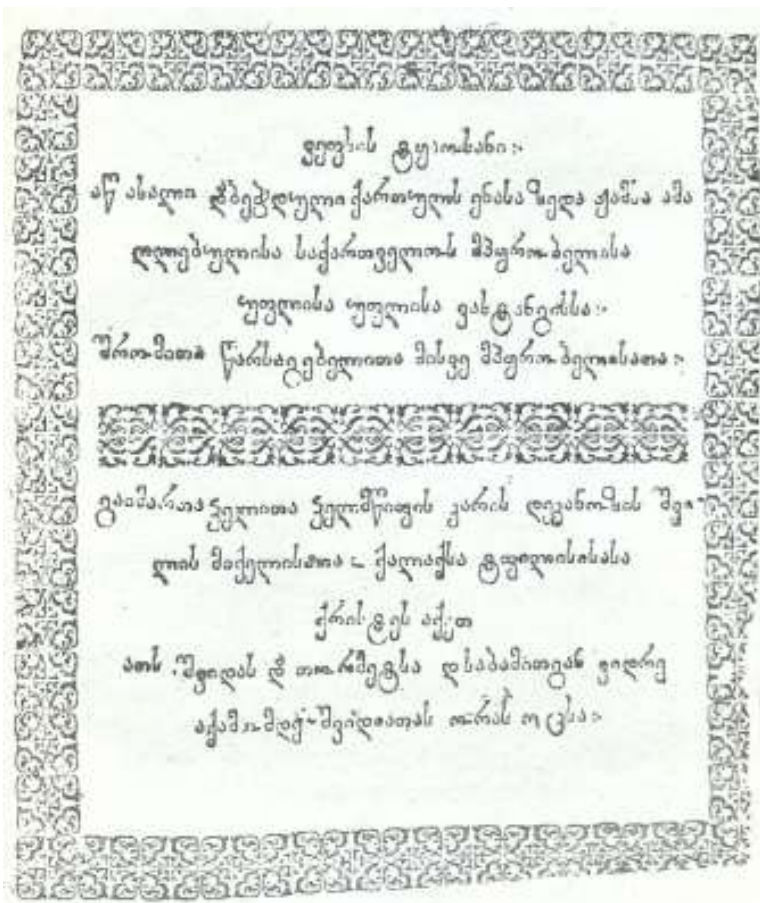 ვეფხის ტყაოსანი:
აწ ახალი დ~ბეჭდული ქართულს ენასა ზედა ჟამსა ამა
ღლებულისა საქართველოს მპყრობელისა
უფლისა უფლისა ვახტანგისსა:
შრომითა წარსაგებელითა მისვე მპყრობელისათა:
გაიმართა ჴელითა ჴელმწიფის კარის დეკანოზის შვი
ლის მიქელისათა ქალაქსა ტფილისისასა
ქრისტეს აქეთ
ათს შვიდას და თორმეტსა დსაბამითგან ვიდრე
აქამომდე შვიდათას ორას ოცსა: